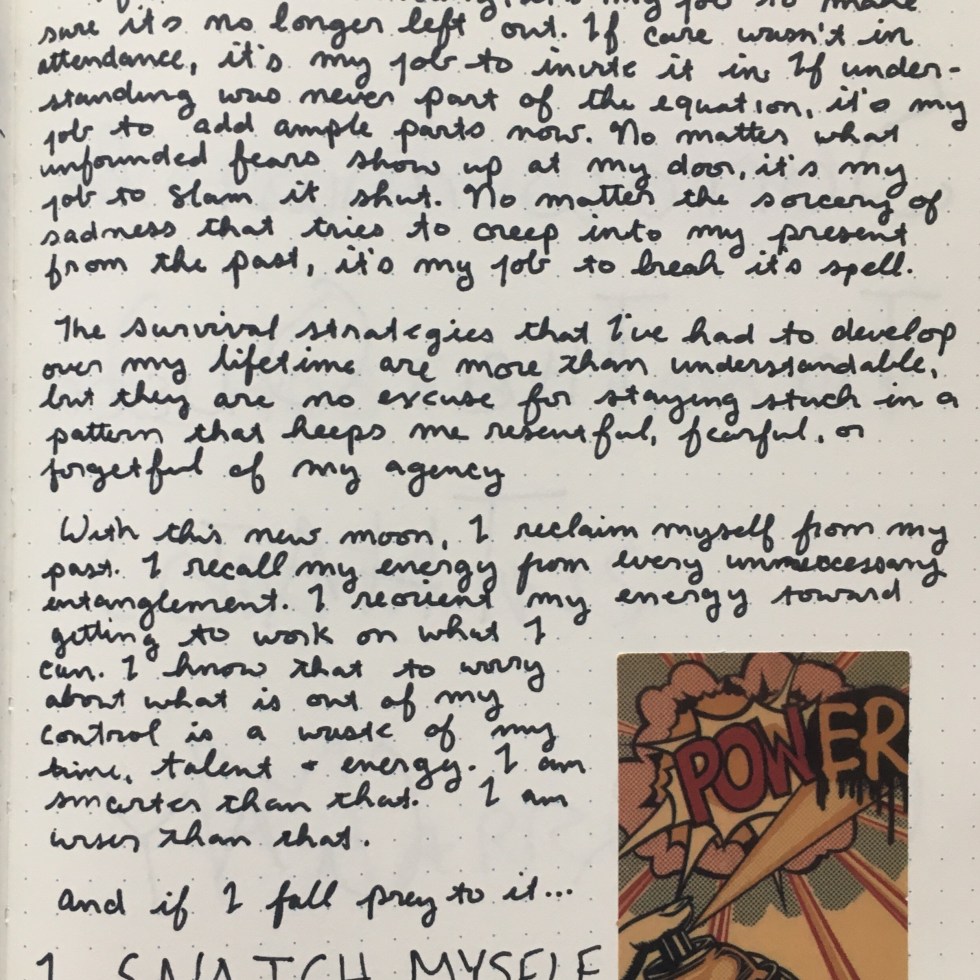 my job to make
sure it's no longer left out. If care wasn't in
attendance, it's my job to invite it in. If under-
standing was never part of the equation, it's my
job to add ample parts now. No matter what
unfounded fears show up at my door, it's my
job to slam it shut. No matter the sorcery of
sadness that tries to creep into my present
from the past, it's my job to break it's spell.
The survival strategies that I've had to develop
over my lifetime are more than understandable,
but they are no excuse for staying stuck in a
pattern that keeps me resentful, fearful, or
forgetful of my agency
With this new moon, I reclaim myself from my
past. I recall my energy from every unneccessary
entanglement. I reorient my energy toward
getting to work on what I
can. I know that to worry
about what is out of my
control is a waste of my
time, talent + energy. I am
smarter than that. I am
wiser than that.
And if I fall prey to it...
I SNATCH MYSELF
POWER